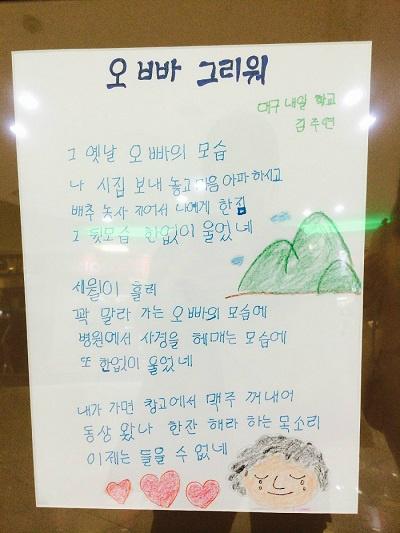 오 빠빠 그리워
대구 내일 학교
김주연
그 옛날 오빠의 모습
나 시집 보내 놓고 마음 아파하시고
배추 농사 지어서 나에게 한짐
그 뒷모습 한없이 울었네
세월이 흘러
꽉 말라 가는 오빠의 모습에
병원에서 사경을 헤매는 모습에
또 한없이 울었네
내가 가면 창고에서 맥주 꺼내어
동상 왔나 한잔 해라 하는 목소리
이제는 들을 수 없네